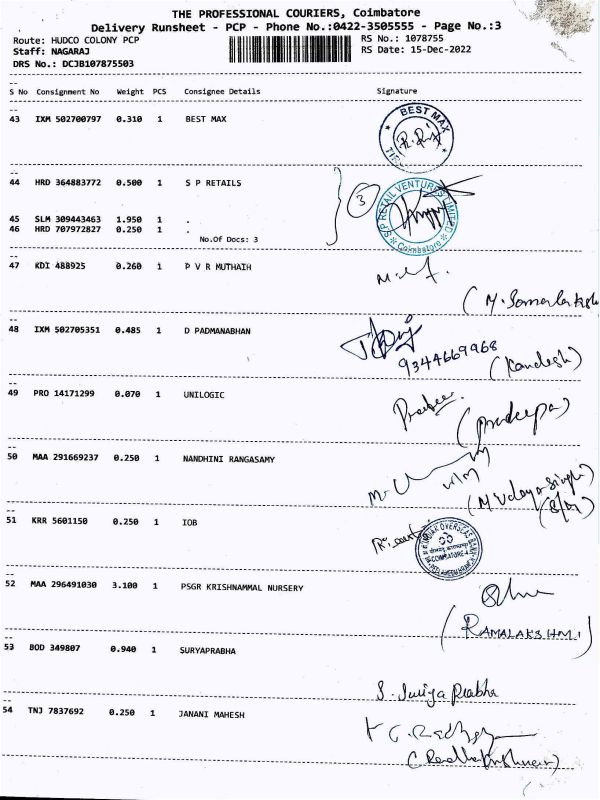 THE PROFESSIONAL COURIERS, Coimbatore
Delivery Runsheet - PCP - Phone No.:0422-3505555 - Page No.:3
Route: HUDCO COLONY PCP RS No.: 1078755
Staff: NAGARAJ RS Date: 15-Dec-2022
DRS No.: DCJB107875503
S No Consignment No Weight PCS Consignee Details Signature
43 IXM 502700797 0.310 1 BEST MAX
BEST MAX
44 HRD 364883772 0.500 1 S P RETAILS
3
S.P RETAIL VENTURES LIMITED
Coimbatore
45 SLM 309443463 1.950 1 .
46 HRD 707972827 0.250 1 .
No.Of Docs: 3
47 KDI 488925 0.260 1 P V R MUTHAIH
48 IXM 502705351 0.485 1 D PADMANABHAN
9344669968
(Kandesh)
49 PRO 14171299 0.070 1 UNILOGIC
(Pradeepa)
50 MAA 291669237 0.250 1 NANDHINI RANGASAMY
51 KRR 5601150 0.250 1 IOB
INDIAN OVERSEAS BANK
COIMBATORE
52 MAA 296491030 3.100 1 PSGR KRISHNAMMAL NURSERY
(RAMALAKSHMI)
53 BOD 349807 0.940 1 SURYAPRABHA
S. Suriya Prabha
54 TNJ 7837692 0.250 1 JANANI MAHESH